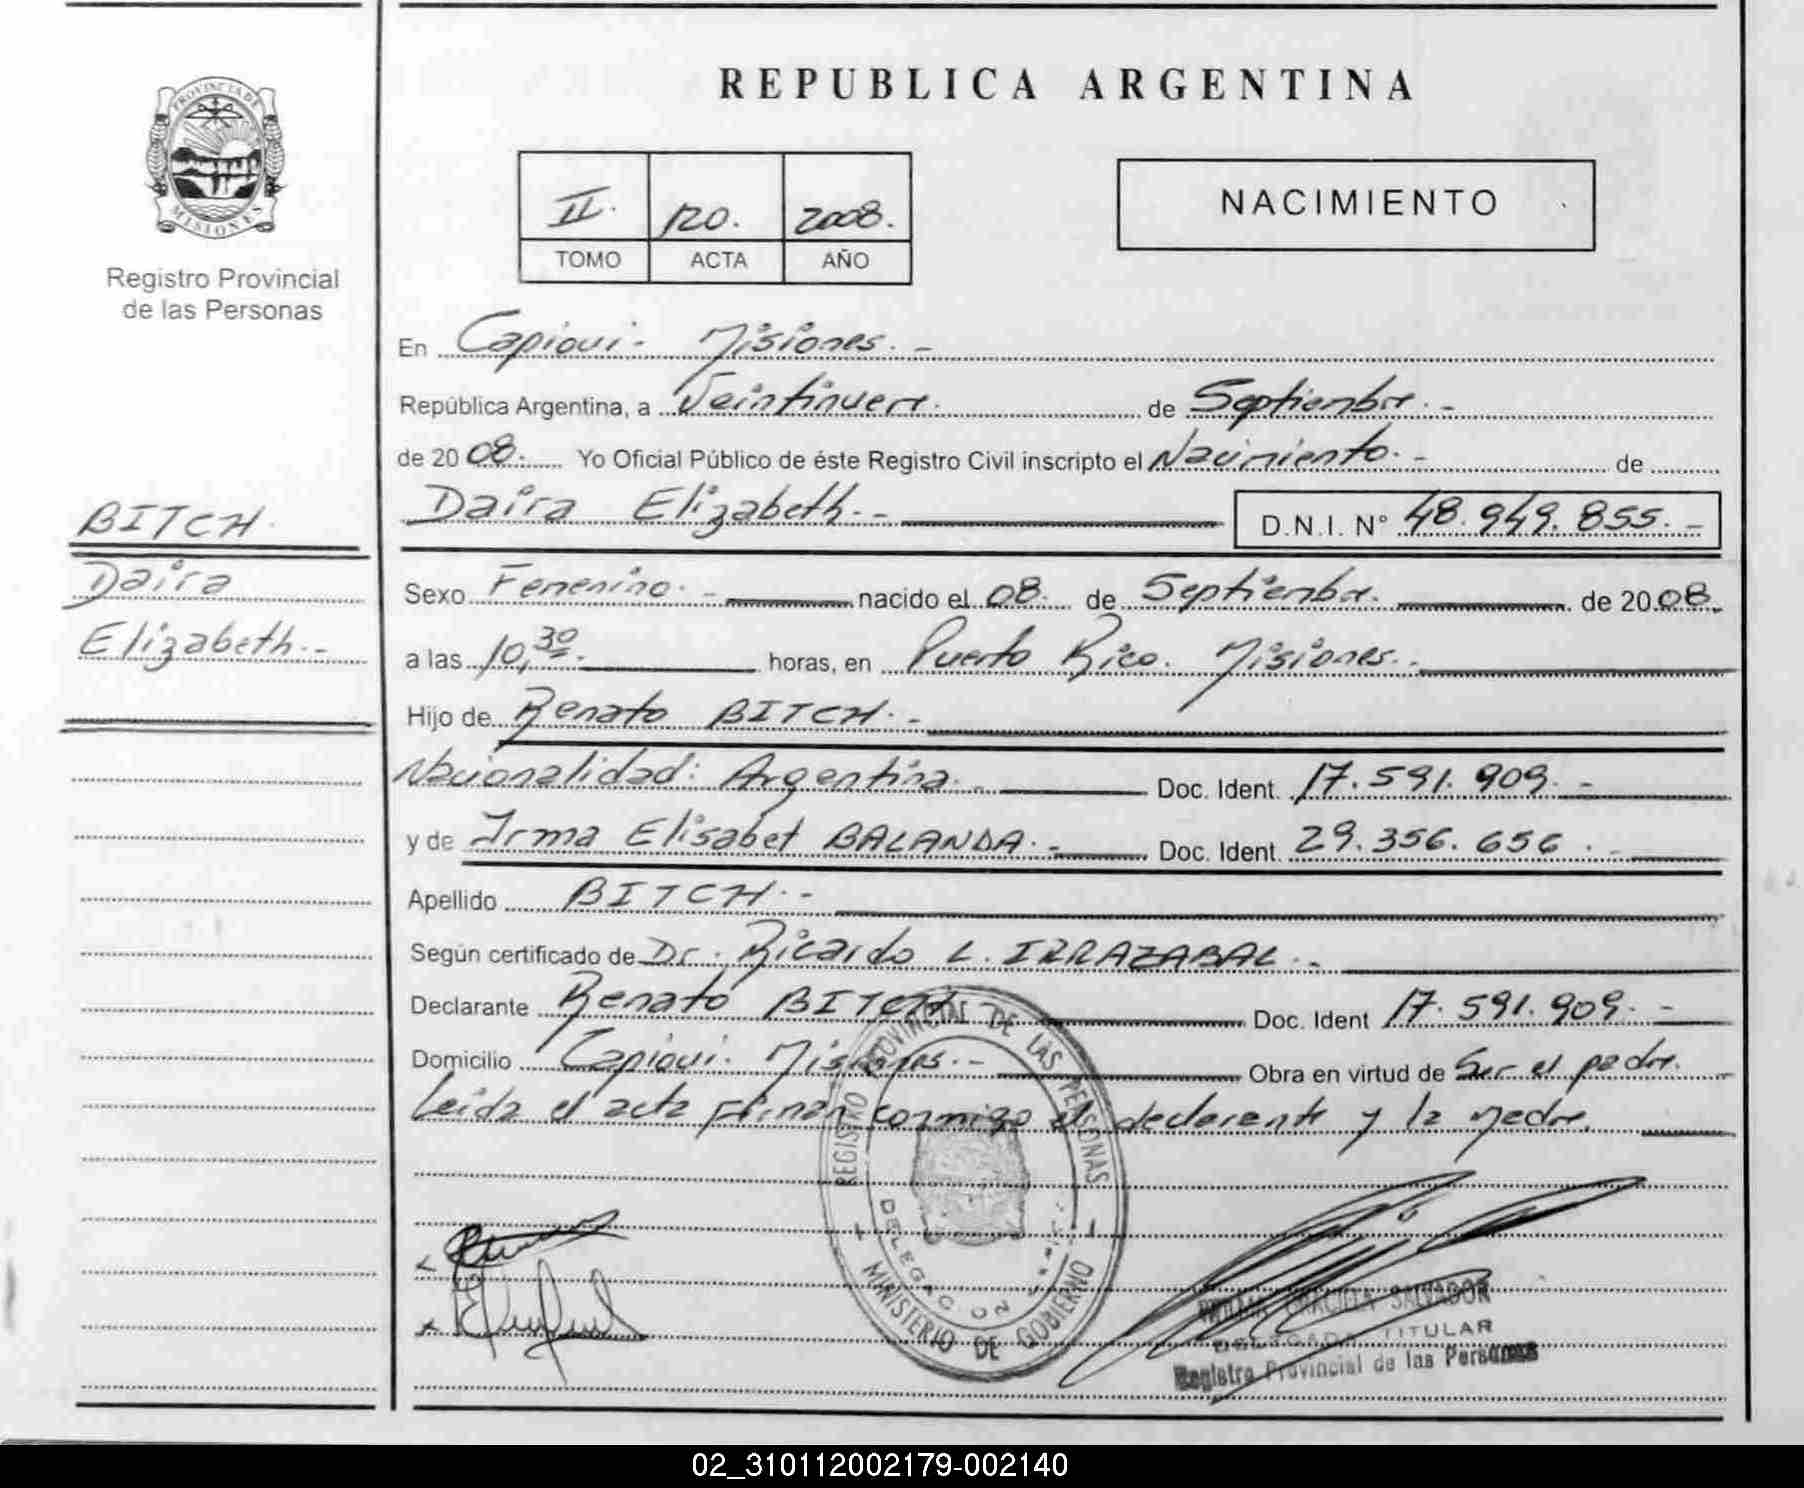 REPUBLICA ARGENTINA
PROVINCIA DE
MISIONES
Registro Provincial
de las Personas
II. 120. 2008.
TOMO ACTA AÑO
NACIMIENTO
En Capiovi - Misiones. -
República Argentina, a Veintinueve. de Septiembre. -
de 20 08. Yo Oficial Público de éste Registro Civil inscripto el Nacimiento. - de
BITCH
Daira
Elizabeth. -
Daira Elizabeth. - D.N.I. N° 48.949.855. -
Sexo Femenino. - nacido el 08. de Septiembre. de 20 08.
a las 10,30. horas, en Puerto Rico. Misiones. -
Hijo de Renato BITCH. -
Nacionalidad: Argentina. - Doc. Ident. 17.591.909. -
y de Irma Elisabet BALANDA. - Doc. Ident. 29.356.656. -
Apellido BITCH. -
Según certificado de Dr. Ricardo L. IRRAZABAL. -
Declarante Renato BITCH Doc. Ident 17.591.909. -
Domicilio Capiovi. Misiones. - Obra en virtud de Ser el padre.
Leida el acta firman conmigo el declarante y la Madre.
REGISTRO PROVINCIAL DE LAS PERSONAS
DELEGACION
MINISTERIO DE GOBIERNO
GRACIELA SALVADOR
DELEGADA TITULAR
Registro Provincial de las Personas
02_310112002179-002140